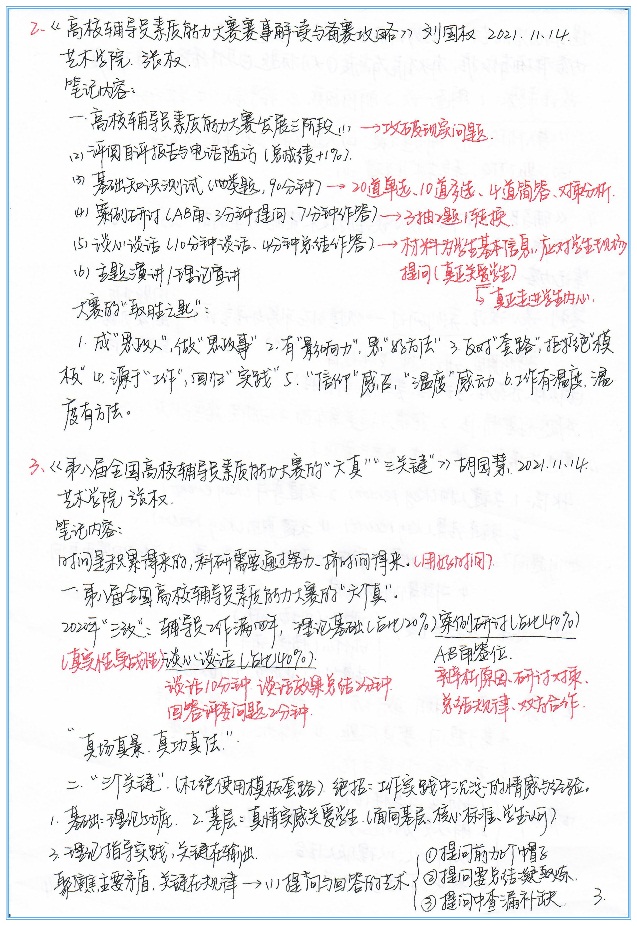 2.《高校辅导员素质能力大赛赛事解读与备赛攻略》刘国权 2021.11.14.
艺术学院 张权.
笔记内容:
一.高校辅导员素质能力大赛发展三阶段(1) →攻破现实问题.
(2) 评阅自评报告与电话随访(总成绩+1%).
(3) 基础知识测试(四类题,90分钟)→20道单选、10道多选、4道简答、对策分析.
(4) 案例研讨(AB角、3分钟提问、7分钟作答)→3抽2题1轮换.
(5) 谈心谈话(10分钟谈话、4分钟总结作答)→材料为学生基本信息,应对学生现场
提问(真正关爱学生)
(6) 主题演讲/理论宣讲
↳真正走进学生内心.
大赛的"取胜之匙":
1.成"思政人",做"思政事" 2.有"影响力",思"好方法" 3.反对"套路",拒绝"模
板" 4.源于"工作",回归"实践" 5."信仰"感召,"温度"感动 6.工作有温度,温
度有方法。
3.《第八届全国高校辅导员素质能力大赛的"六真""三关键"》胡国慧.2021.11.14
艺术学院 张权.
笔记内容:
时间是积累得来的,科研需要通过努力、挤时间得来.(用好时间)
一.第八届全国高校辅导员素质能力大赛的"六个真".
2020年"三改":辅导员工作满四年,理论基础(占比20%)案例研讨(占比40%)
(真实性、实战性)谈心谈话(占比40%)
AB角签位.
谈话10分钟 谈话效果总结2分钟.
回答评委问题2分钟.
案单析原因、研讨对策.
总结规律、双方合作.
"真场真景.真功真法."
二."三个关键".(杜绝使用模板套路)绝招:工作实践中沉淀的情感与经验。
1.基础:理论功底. 2.基层:真情实感关爱学生(面向基层、核心标准、学生认可)
3.理论指导实践,关键在输出.
聚焦主要矛盾,关键在规律→(1)提问与回答的艺术
①提问前加个帽子
②提问要总结凝聚炼.
③提问中查漏补缺.
3.